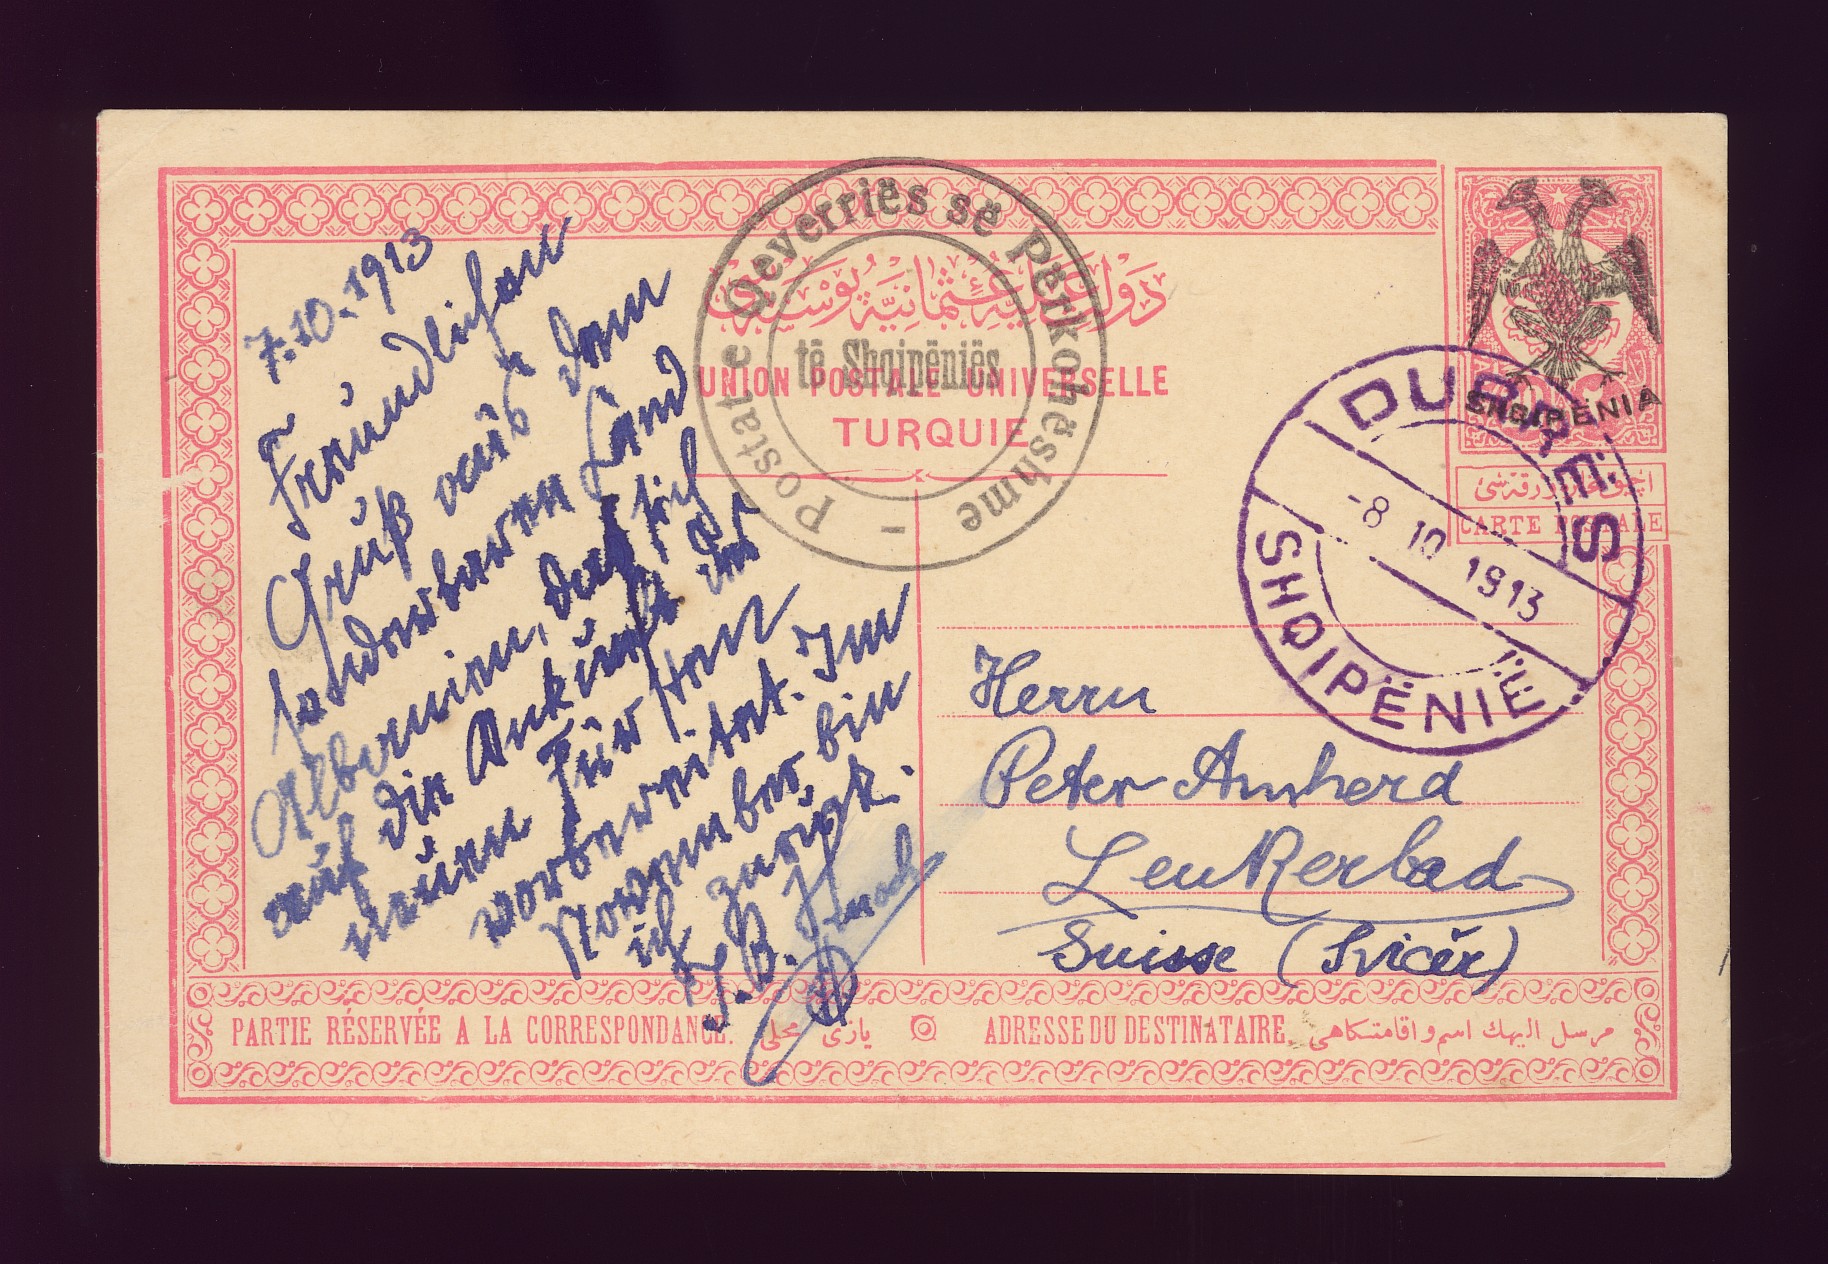 Postat e Qeverriës së Përkohëshme
të Shqipëniës
دولت علیهٔ عثمانیه پوسته‌لری
UNION POSTALE UNIVERSELLE
TURQUIE
SHQIPËNIA
CARTE POSTALE
DURRËS
-8 10 1913
SHQIPËNIE
7.10.1913
Freundlichen
Gruß aus dem
sonderbaren Land
Albanien, das sich
auf die Ankunft des
neuen Fürsten
vorbereitet. Im
November bin
ich zurück.
J. B.
Herrn
Peter Amherd
Leukerbad
Suisse (Svicër)
PARTIE RÉSERVÉE A LA CORRESPONDANCE. یازی محلی
ADRESSE DU DESTINATAIRE. مرسل الیهك اسم و اقامتكاهی